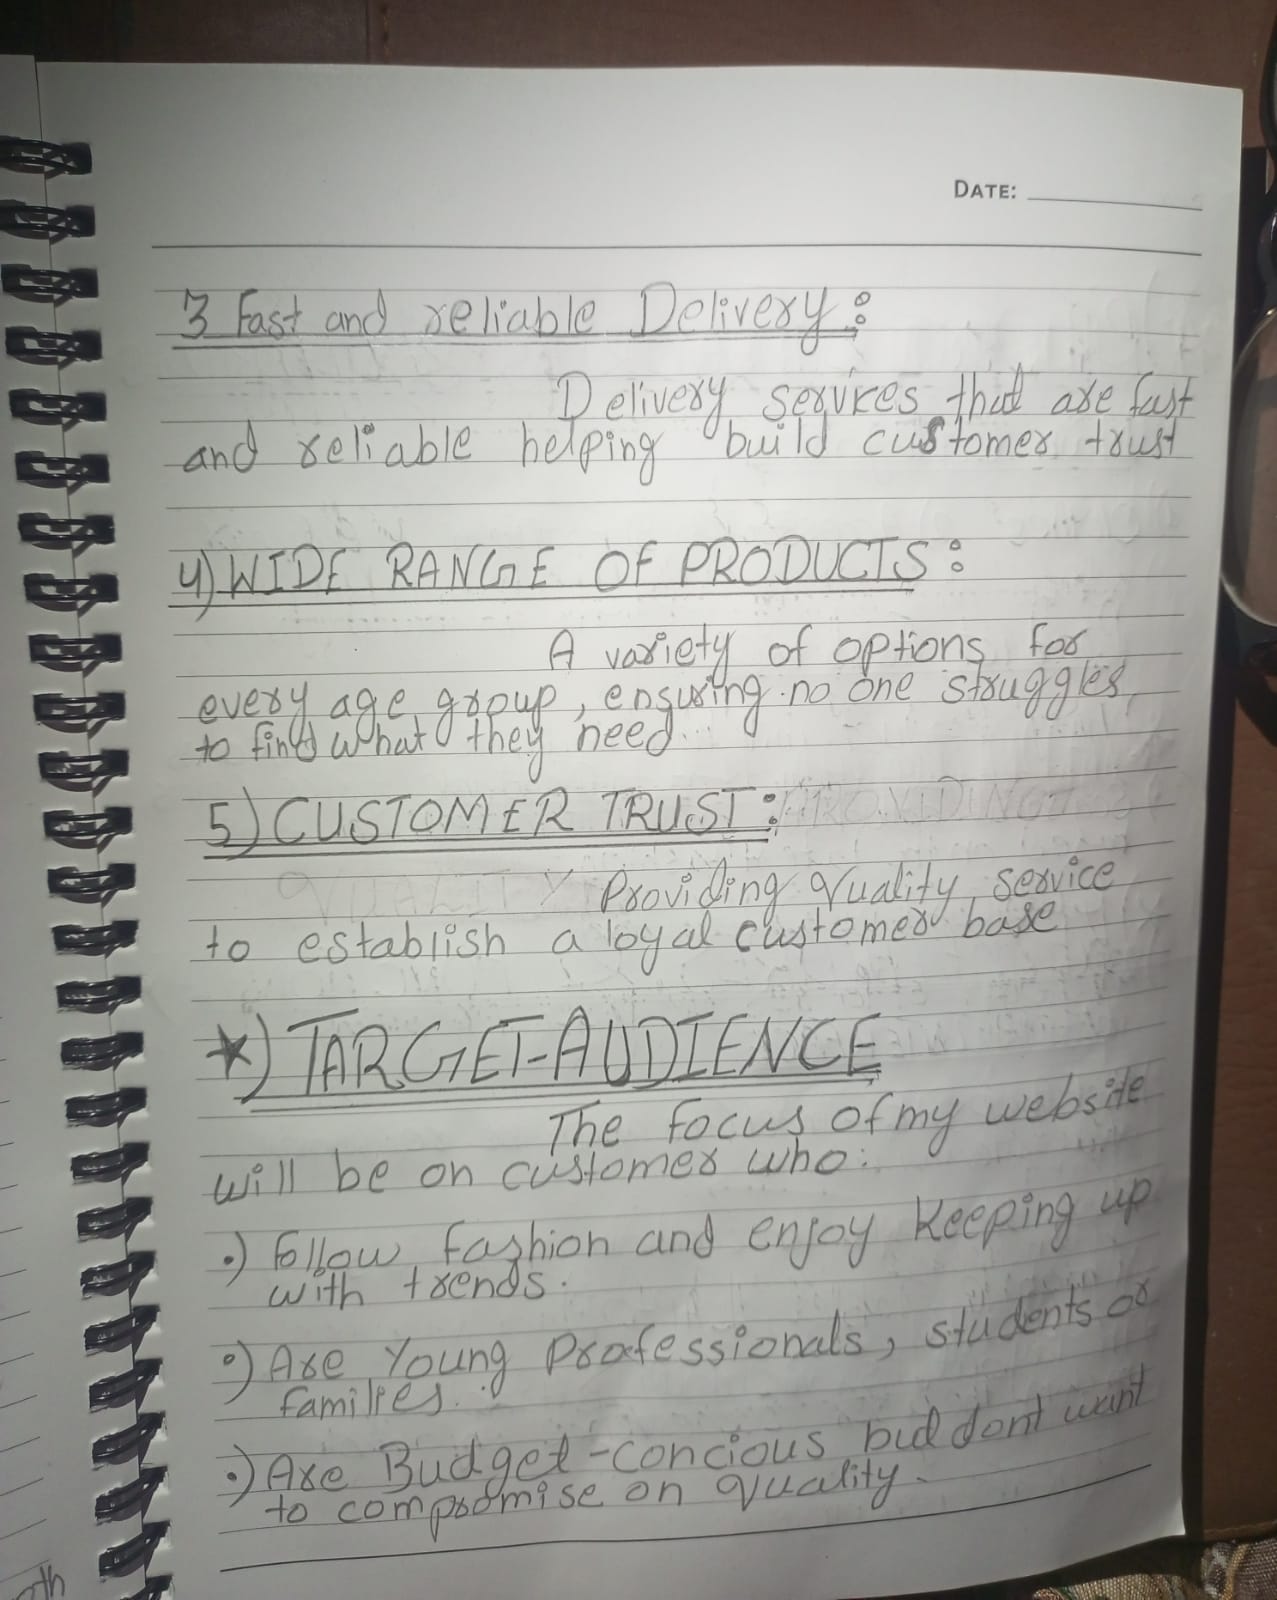 DATE:
3 Fast and reliable Delivery:
Delivery services that are fast
and reliable helping build customer trust
4) WIDE RANGE OF PRODUCTS:
A variety of options for
every age group, ensuring no one struggles
to find what they need
5) CUSTOMER TRUST: PROVIDING
QUALITY Providing Quality service
to establish a loyal customer base
★) TARGET-AUDIENCE
The focus of my website
will be on customer who:
•) Follow fashion and enjoy keeping up
with trends.
•) Are Young Professionals, students or
families.
•) Are Budget-concious but dont want
to compromise on quality.